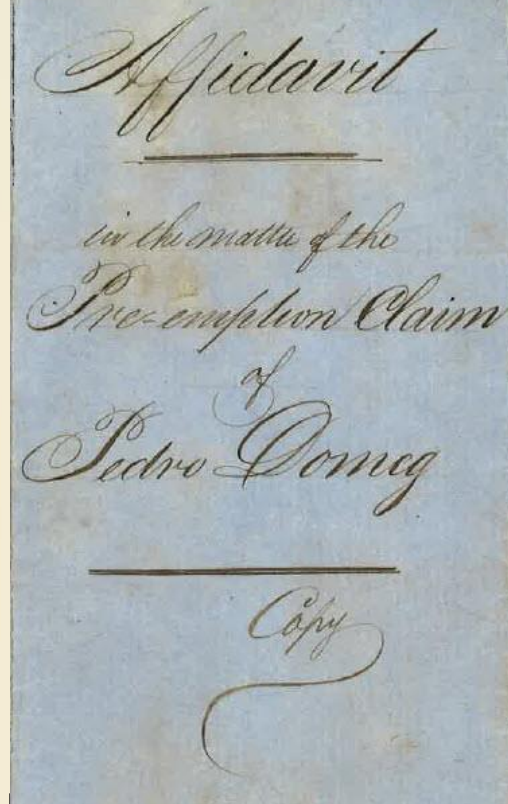 Affidavit
in the matter of the
Pre-emption Claim
of
Pedro Domeg
Copy